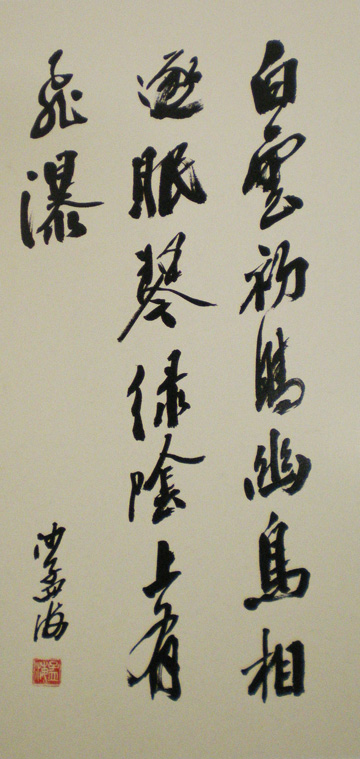 白雲初晴幽鳥相
逐眠琴緑陰上有
飛瀑
沙孟海